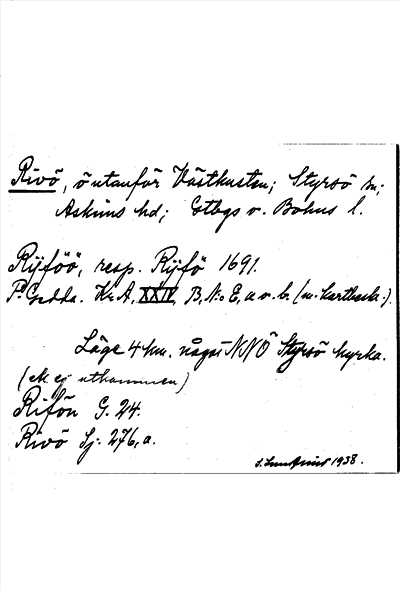 Rivö, ö utanför Västkusten; Styrsö sn;
Askims hd; Gtbgs o. Bohus l.
Rÿföö, resp. Rÿfö 1691.
P. Gedda. Kr. A, XXIV, B, No E, a o. b. (m. kartbeskr.).
Läge 4 km. något NNÖ Styrsö kyrka.
(ek ej utkommen)
Rifön G. 24.
Rivö Sj. 276, a.
1938.